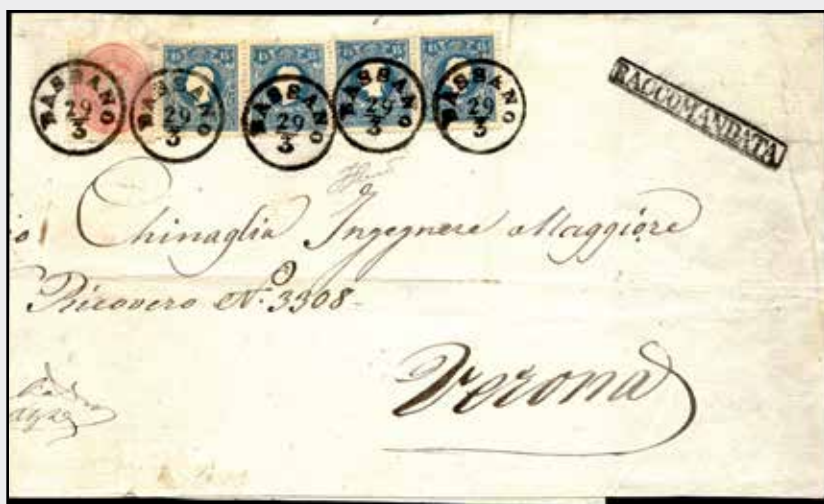 15 15 15 15 15 15 15 15
BASSANO 29/3
BASSANO 29/3
BASSANO 29/3
BASSANO 29/3
BASSANO 29/3
RACCOMANDATA
Chinaglia Ingegnere Maggiore
Ricovero N.º 3308
Verona